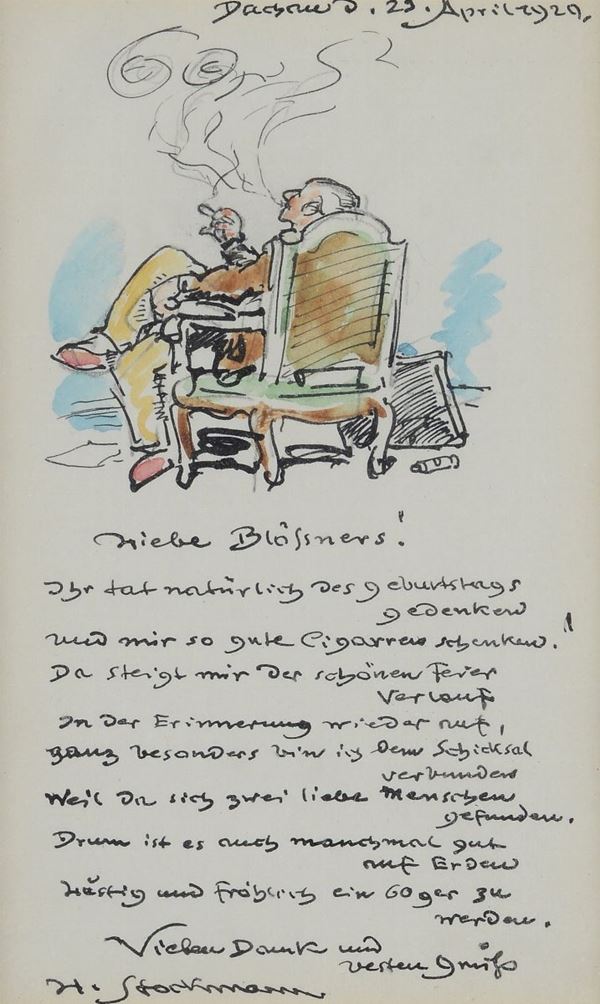 Dachau d. 23. April 1929.
60
Liebe Blößners!
Ihr tat natürlich des Geburtstags
gedenken
und mir so gute Cigarren schenken.!
Da steigt mir der schönen Feier
Verlauf
In der Erinnerung wieder auf,
ganz besonders bin ich dem Schicksal
verbunden
Weil da sich zwei liebe Menschen
gefunden.
Drum ist es auch manchmal gut
auf Erden
und fröhlich ein 60ger zu
werden.
Vielen Dank und
besten Gruß
H. Stockmann